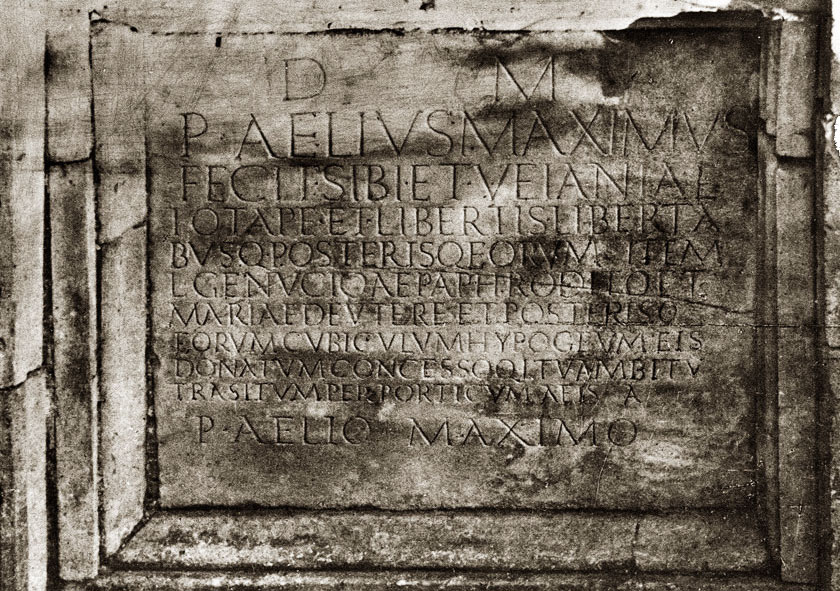 D M
P·AELIVS MAXIMVS
FECIT·SIBI·ET·VEIANIAE
IOTAPE·ET·LIBERTIS LIBERTA
BVSQ POSTERISQ EORVM ITEM
L GENVCIO AEPAPHRODETO ET
MARIAE DEVTERE ET POSTERISQ
EORVM CVBICVLVM HYPOGEVM EIS
DONATVM CONCESSOQ ITV AMBITV
TRASITVM PER PORTICVM AEIS A
P·AELIO MAXIMO